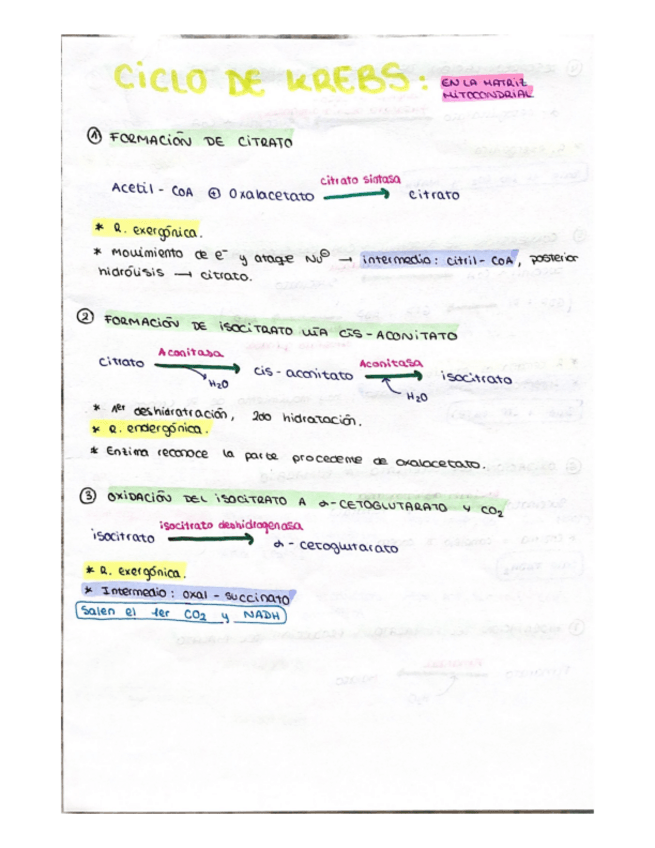 CICLO DE KREBS: EN LA MATRIZ
MITOCONDRIAL
① FORMACIÓN DE CITRATO
citrato sintasa
Acetil - CoA ⊕ Oxalacetato → citrato
* R. exergónica.
* Movimiento de e⁻ y ataque Nu⊖ → intermedio: citril - CoA, posterior
hidrólisis → citrato.
② FORMACIÓN DE ISOCITRATO VÍA CIS - ACONITATO
Aconitasa Aconitasa
citrato → cis - aconitato → isocitrato
H₂O H₂O
* 1er deshidratración, 2do hidratación.
* R. endergónica.
* Enzima reconoce la parte procedente de oxalacetato.
③ OXIDACIÓN DEL ISOCITRATO A α - CETOGLUTARATO Y CO₂
isocitrato deshidrogenasa
isocitrato → α - cetoglutarato
* R. exergónica.
* Intermedio: oxal - succinato
Salen el 1er CO₂ y NADH